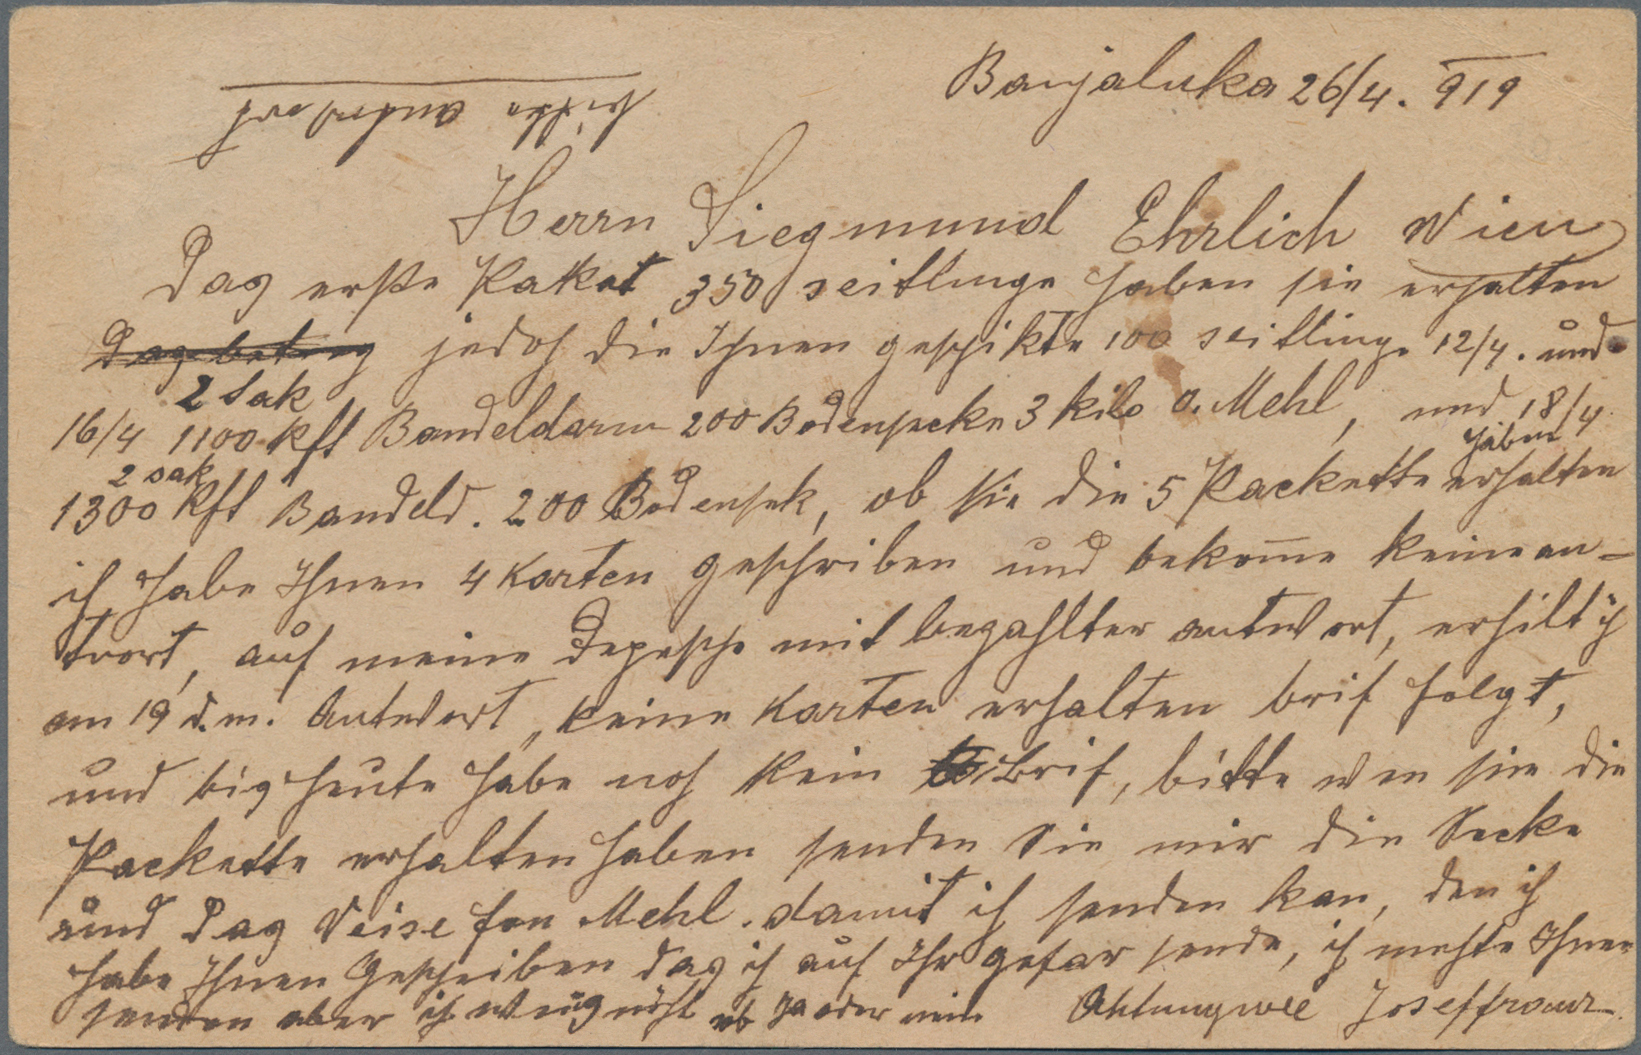 Banjaluka 26/4. 919
bitte antwort
Herrn Siegmund Ehrlich Wien
Das erste Paket 350 seitlinge haben sie erhalten
Das betrag jedoh die Ihnen geschikte 100 seitlinge 12/4. und
2 Sak
16/4 1100 Kft Bandeldarm 200 Bodensecke 3 kilo o. Mehl, und 18/4
2 sak haben
1300 Kft Bandeld. 200 Bodensek, ob sie die 5 Packette erhalten
ich habe Ihnen 4 Karten geschriben und bekom̄e keine an=
twort, auf meine Depesche mit bezahlter antwort, erhilt ich
am 19 d.m. Antwort „keine Karten erhalten brif folgt,
und bis heute habe noh kein brif, bitte wen sie die
Packette erhalten haben senden Sie mir die Secke
und das Veise fon Mehl. damit ich senden kan, den ich
habe Ihnen Geschriben das ich auf Ihr gefar sende, ich mechte Ihnen
senden aber ich weis nicht ob Ja oder nein Ahtungwol